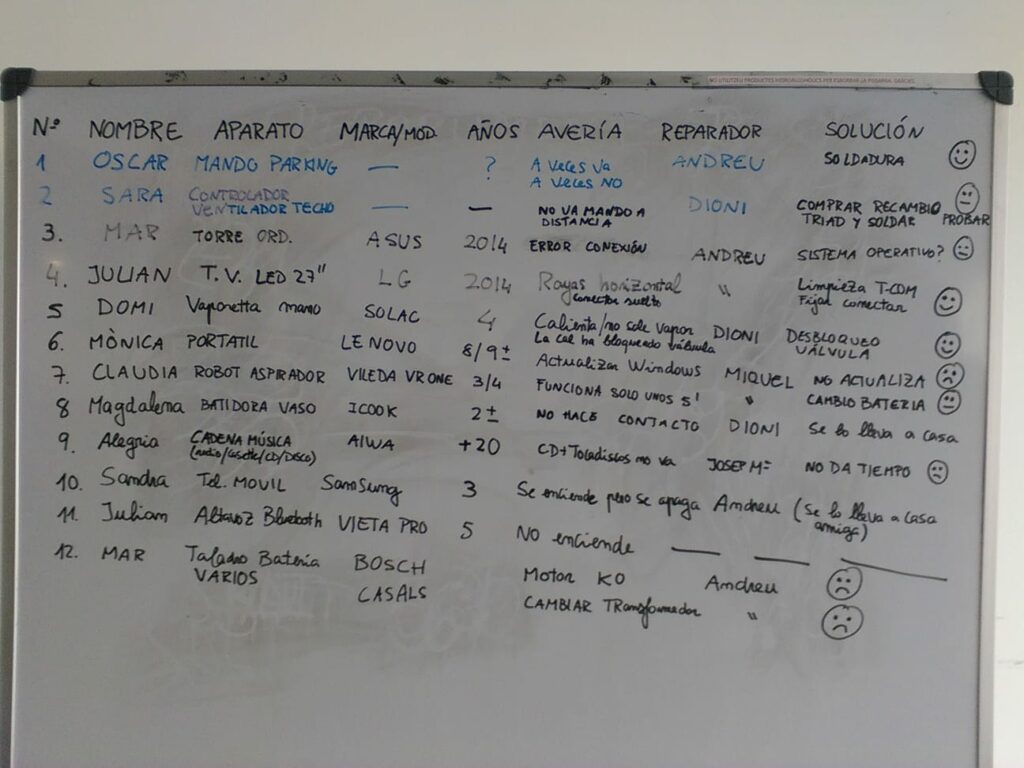 NO UTILITZEU PRODUCTES HIDROALCOHÒLICS PER ESBORRAR LA PISSARRA. GRÀCIES.
Nº NOMBRE APARATO MARCA/MOD. AÑOS AVERÍA REPARADOR SOLUCIÓN
1 OSCAR MANDO PARKING — ? A veces va A veces NO ANDREU SOLDADURA
2 SARA CONTROLADOR VENTILADOR TECHO — — NO VA MANDO A DISTANCIA DIONI COMPRAR RECAMBIO TRIAD Y SOLDAR PROBAR
3. MAR TORRE ORD. ASUS 2014 ERROR CONEXIÓN ANDREU SISTEMA OPERATIVO?
4. JULIAN T.V. LED 27" LG 2014 Rayas horizontal conector suelto " Limpieza T-COM Fijar conectar
5 DOMI Vaporetta mano SOLAC 4 Calienta/no sale vapor La cal ha bloqueado válvula DIONI DESBLOQUEO VÁLVULA
6. MÒNICA PORTATIL LENOVO 8/9± Actualizar Windows MIQUEL NO ACTUALIZA
7. CLAUDIA ROBOT ASPIRADOR VILEDA VR ONE 3/4 FUNCIONA SOLO UNOS 5' " CAMBIO BATERIA
8 Magdalena BATIDORA VASO ICOOK 2± NO HACE CONTACTO DIONI Se lo lleva a casa
9. Alegria CADENA MÚSICA (radio/casette/CD/DISCO) AIWA +20 CD+Tocadiscos no va JOSEP Mª NO DA TIEMPO
10. Sandra Tel. MOVIL SamSung 3 Se enciende pero se apaga Andreu (Se lo lleva a casa amiga)
11. Julian Altavoz Bluetoth VIETA PRO 5 NO enciende — — —
12. MAR Taladro Batería BOSCH Motor KO Andreu
VARIOS CASALS CAMBIAR TRansformador "